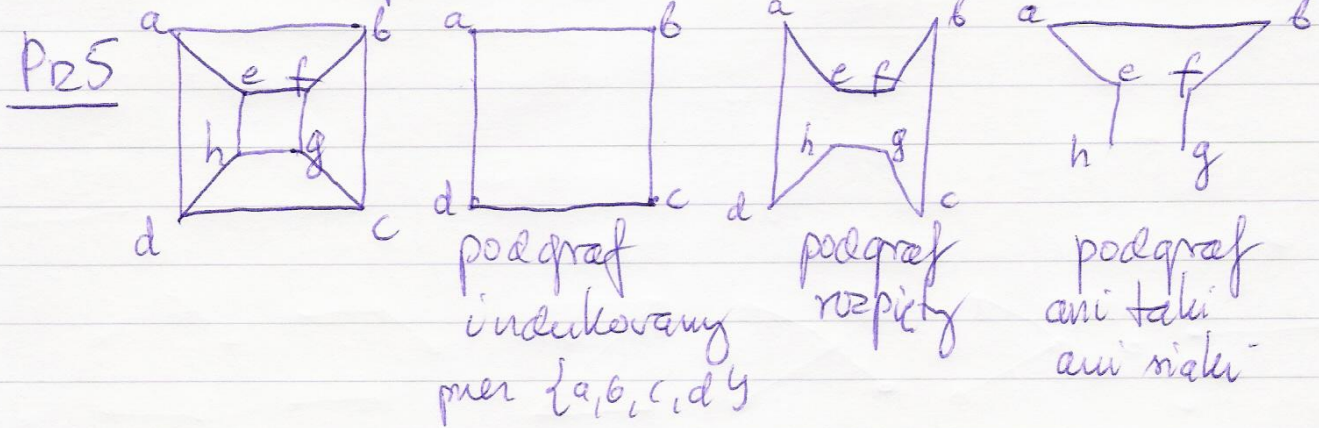 Prz5
a b
e f
h g
d c
a b
d c
podgraf
indukowany
przez {a,b,c,d}
a b
e f
h g
d c
podgraf
rozpięty
a b
e f
h g
podgraf
ani taki
ani siaki